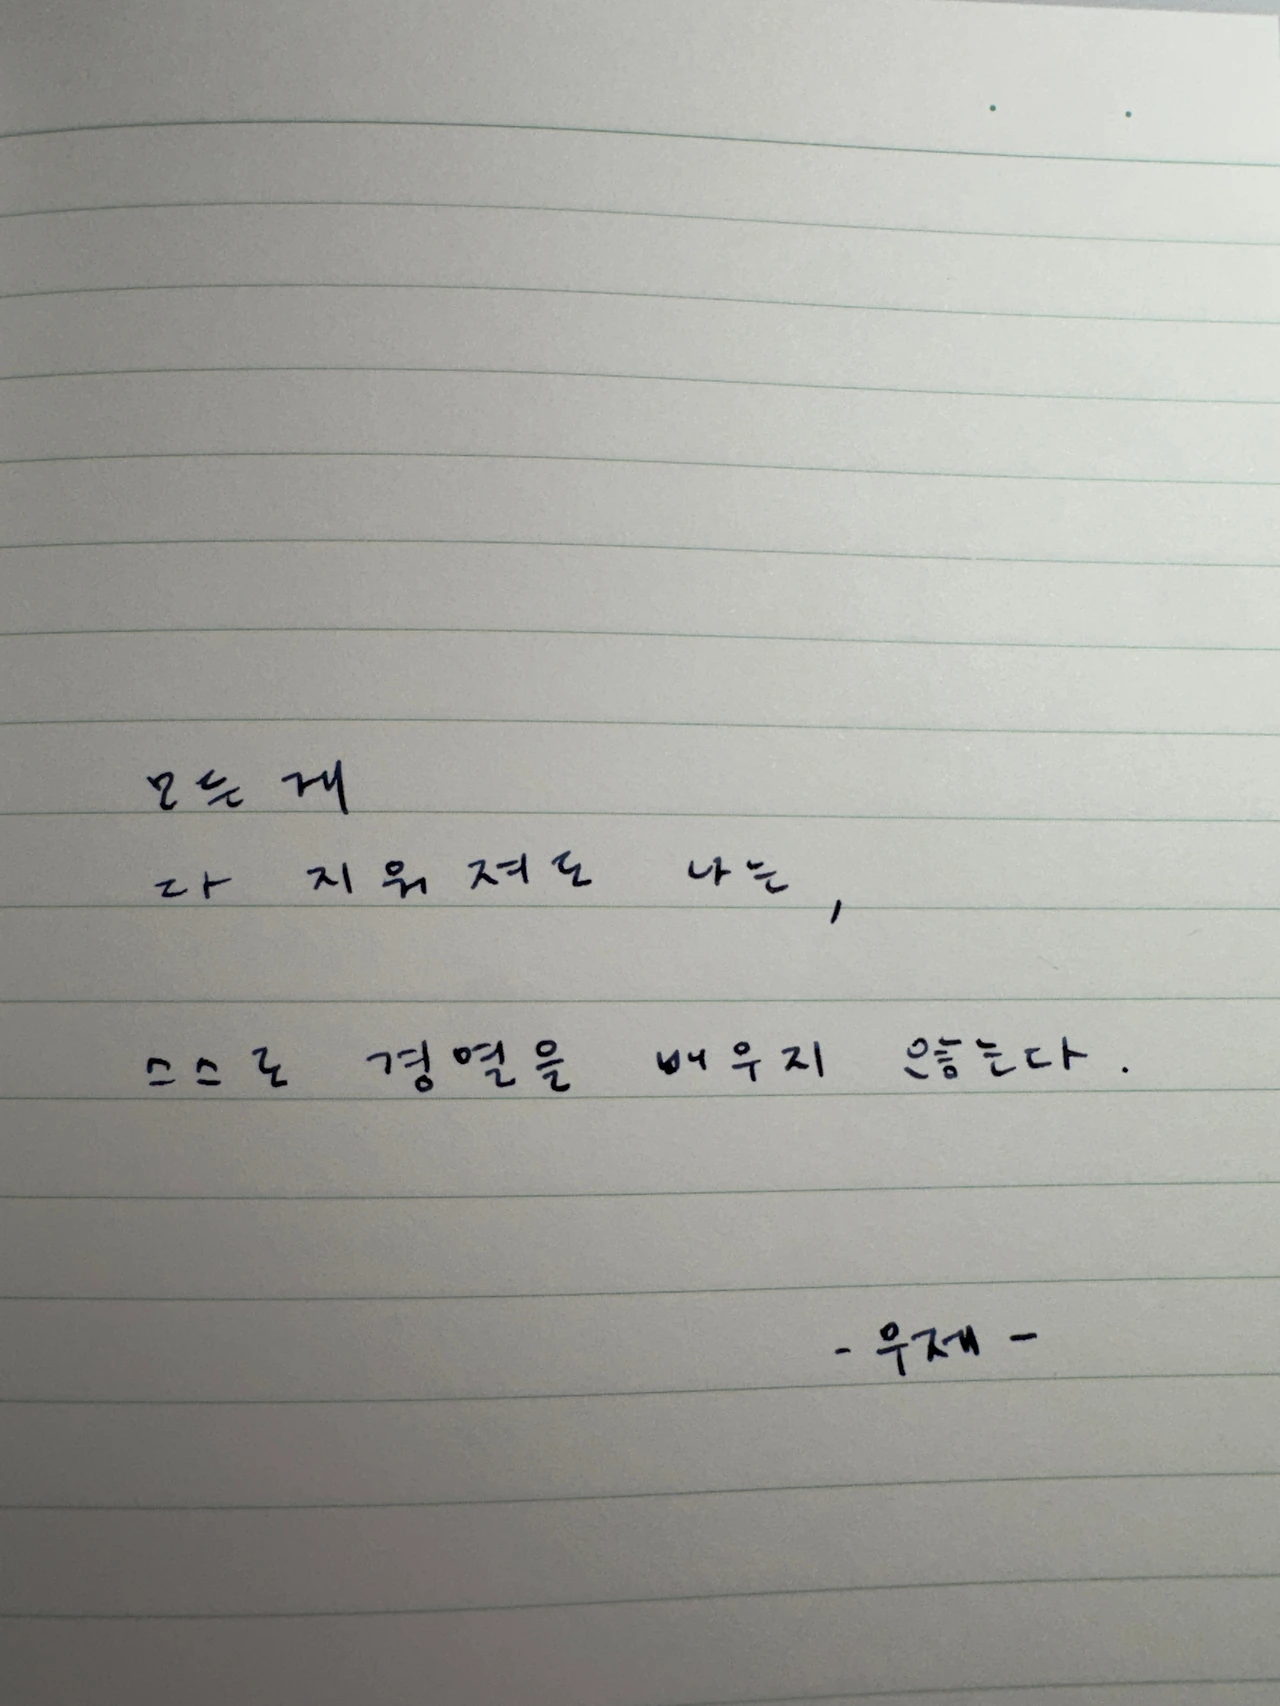 모든 게
다 지워져도 나는,
스스로 경열을 배우지 않는다.
- 우제 -